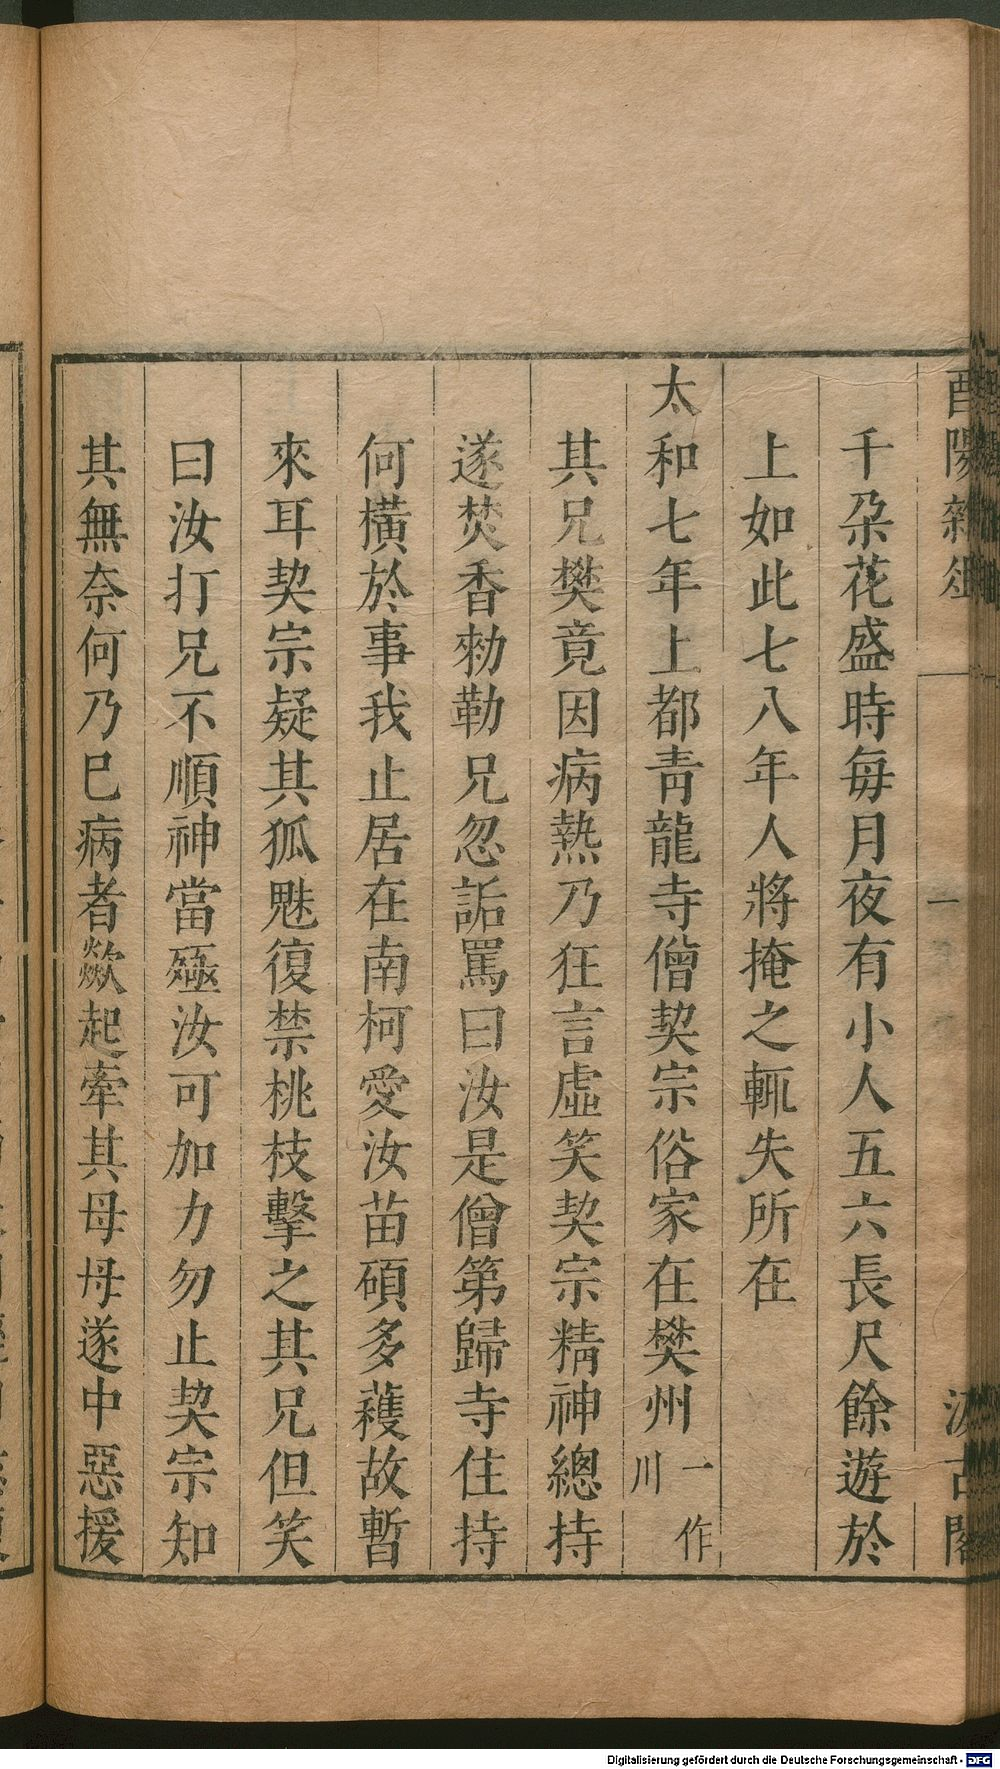 酉陽雜俎 一 汲古閣
千朵花盛時每月夜有小人五六長尺餘遊於
上如此七八年人將掩之輒失所在
太和七年上都靑龍寺僧契宗俗家在樊州一作川
其兄樊竟因病熱乃狂言虛笑契宗精神總持
遂焚香勑勒兄忽詬罵曰汝是僧第歸寺住持
何橫於事我止居在南柯愛汝苗碩多蘾故暫
來耳契宗疑其狐魅復禁桃枝擊之其兄但笑
曰汝打兄不順神當殛汝可加力勿止契宗知
其無奈何乃巳病者歘起牽其母母遂中惡援
Digitalisierung gefördert durch die Deutsche Forschungsgemeinschaft - DFG